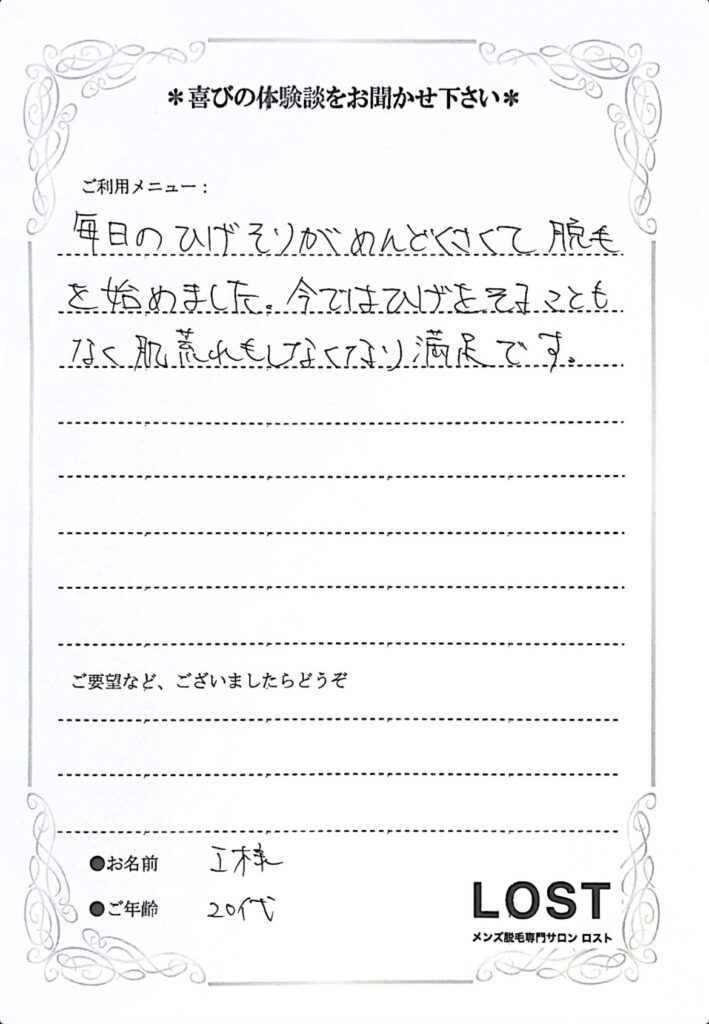 ＊喜びの体験談をお聞かせ下さい＊
ご利用メニュー：
毎日のひげそりがめんどくさくて 脱毛
を始めました。今ではひげをそることも
なく肌荒れもしなくなり満足です。
ご要望など、ございましたらどうぞ
●お名前 I様
●ご年齢 20代
LOST
メンズ脱毛専門サロン ロスト